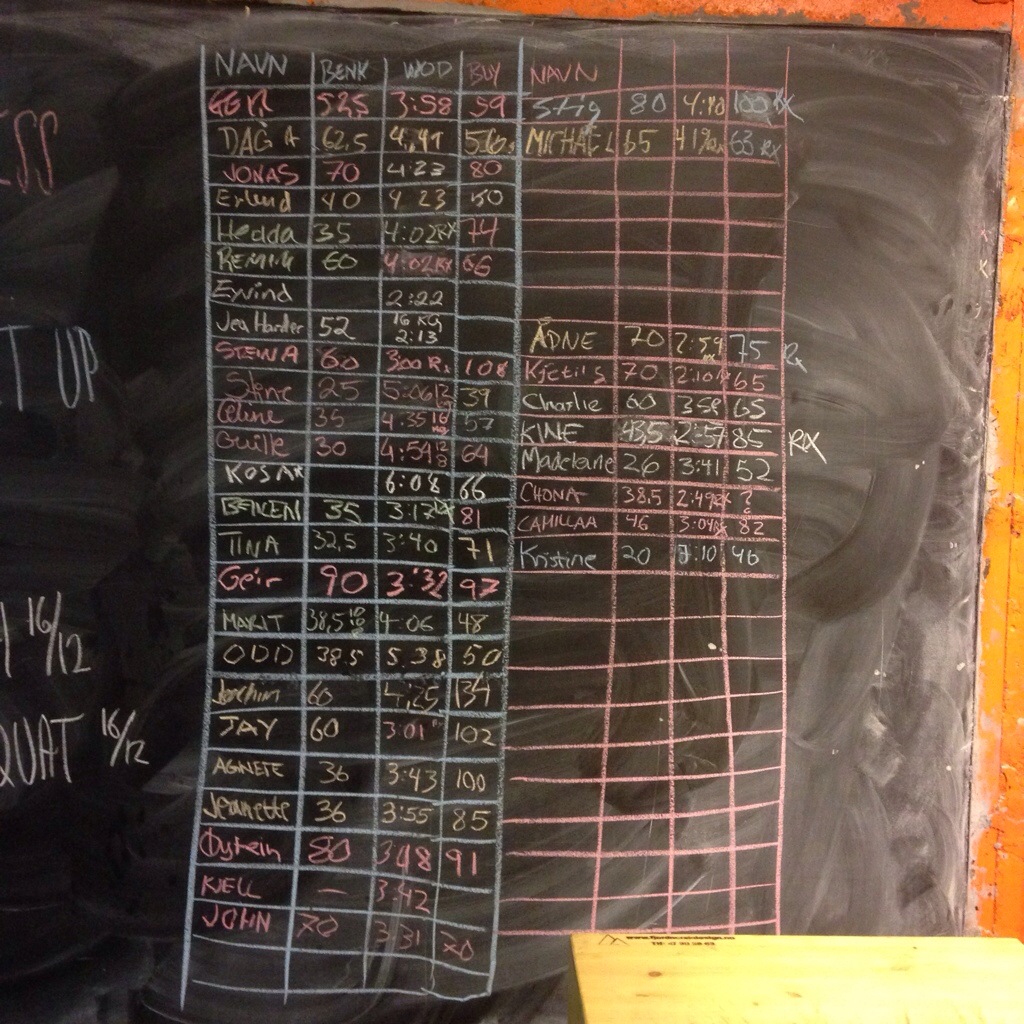 NAVN BENK WOD BUY NAVN
52,5 3:58 59 Stig 80 4:40 100 RX
DAG A 62,5 4,41 MICHAEL 65 63 RX
JONAS 70 4:23 80
Erlend 40 4 23 50
Hedda 35 4:02RX 74
60 4:02RX 66
Eyvind 2:22
52 16 KG 2:13 ÅDNE 70 2:59 75 Rx
60 300 Rx 108 Kjetils 70 2:10 65
Stine 25 5:06 12 39 Charlie 60 3:58 65
Celine 35 4:35 16 57 KINE 43,5 2:57 85 RX
Guille 30 4:54 12 8 64 Madeleine 26 3:41 52
KOSAR 6:08 66 CHONA 38.5 2:49RX ?
35 3:17 81 CAMILLAA 46 3:04RX 82
TINA 32,5 3:40 71 Kristine 20 7:10 46
Geir 90 3:32 97
MARIT 38,5 4 06 48
ODD 38.5 5 38 50
Jochim 60 4,25 134
JAY 60 3:01 102
AGNETE 36 3:43 100
Jeanette 36 3:55 85
Øystein 80 3:48 91
KJELL – 3:42
JOHN 70 3:31 70
ESS
T UP
16/12
QUAT 16/12